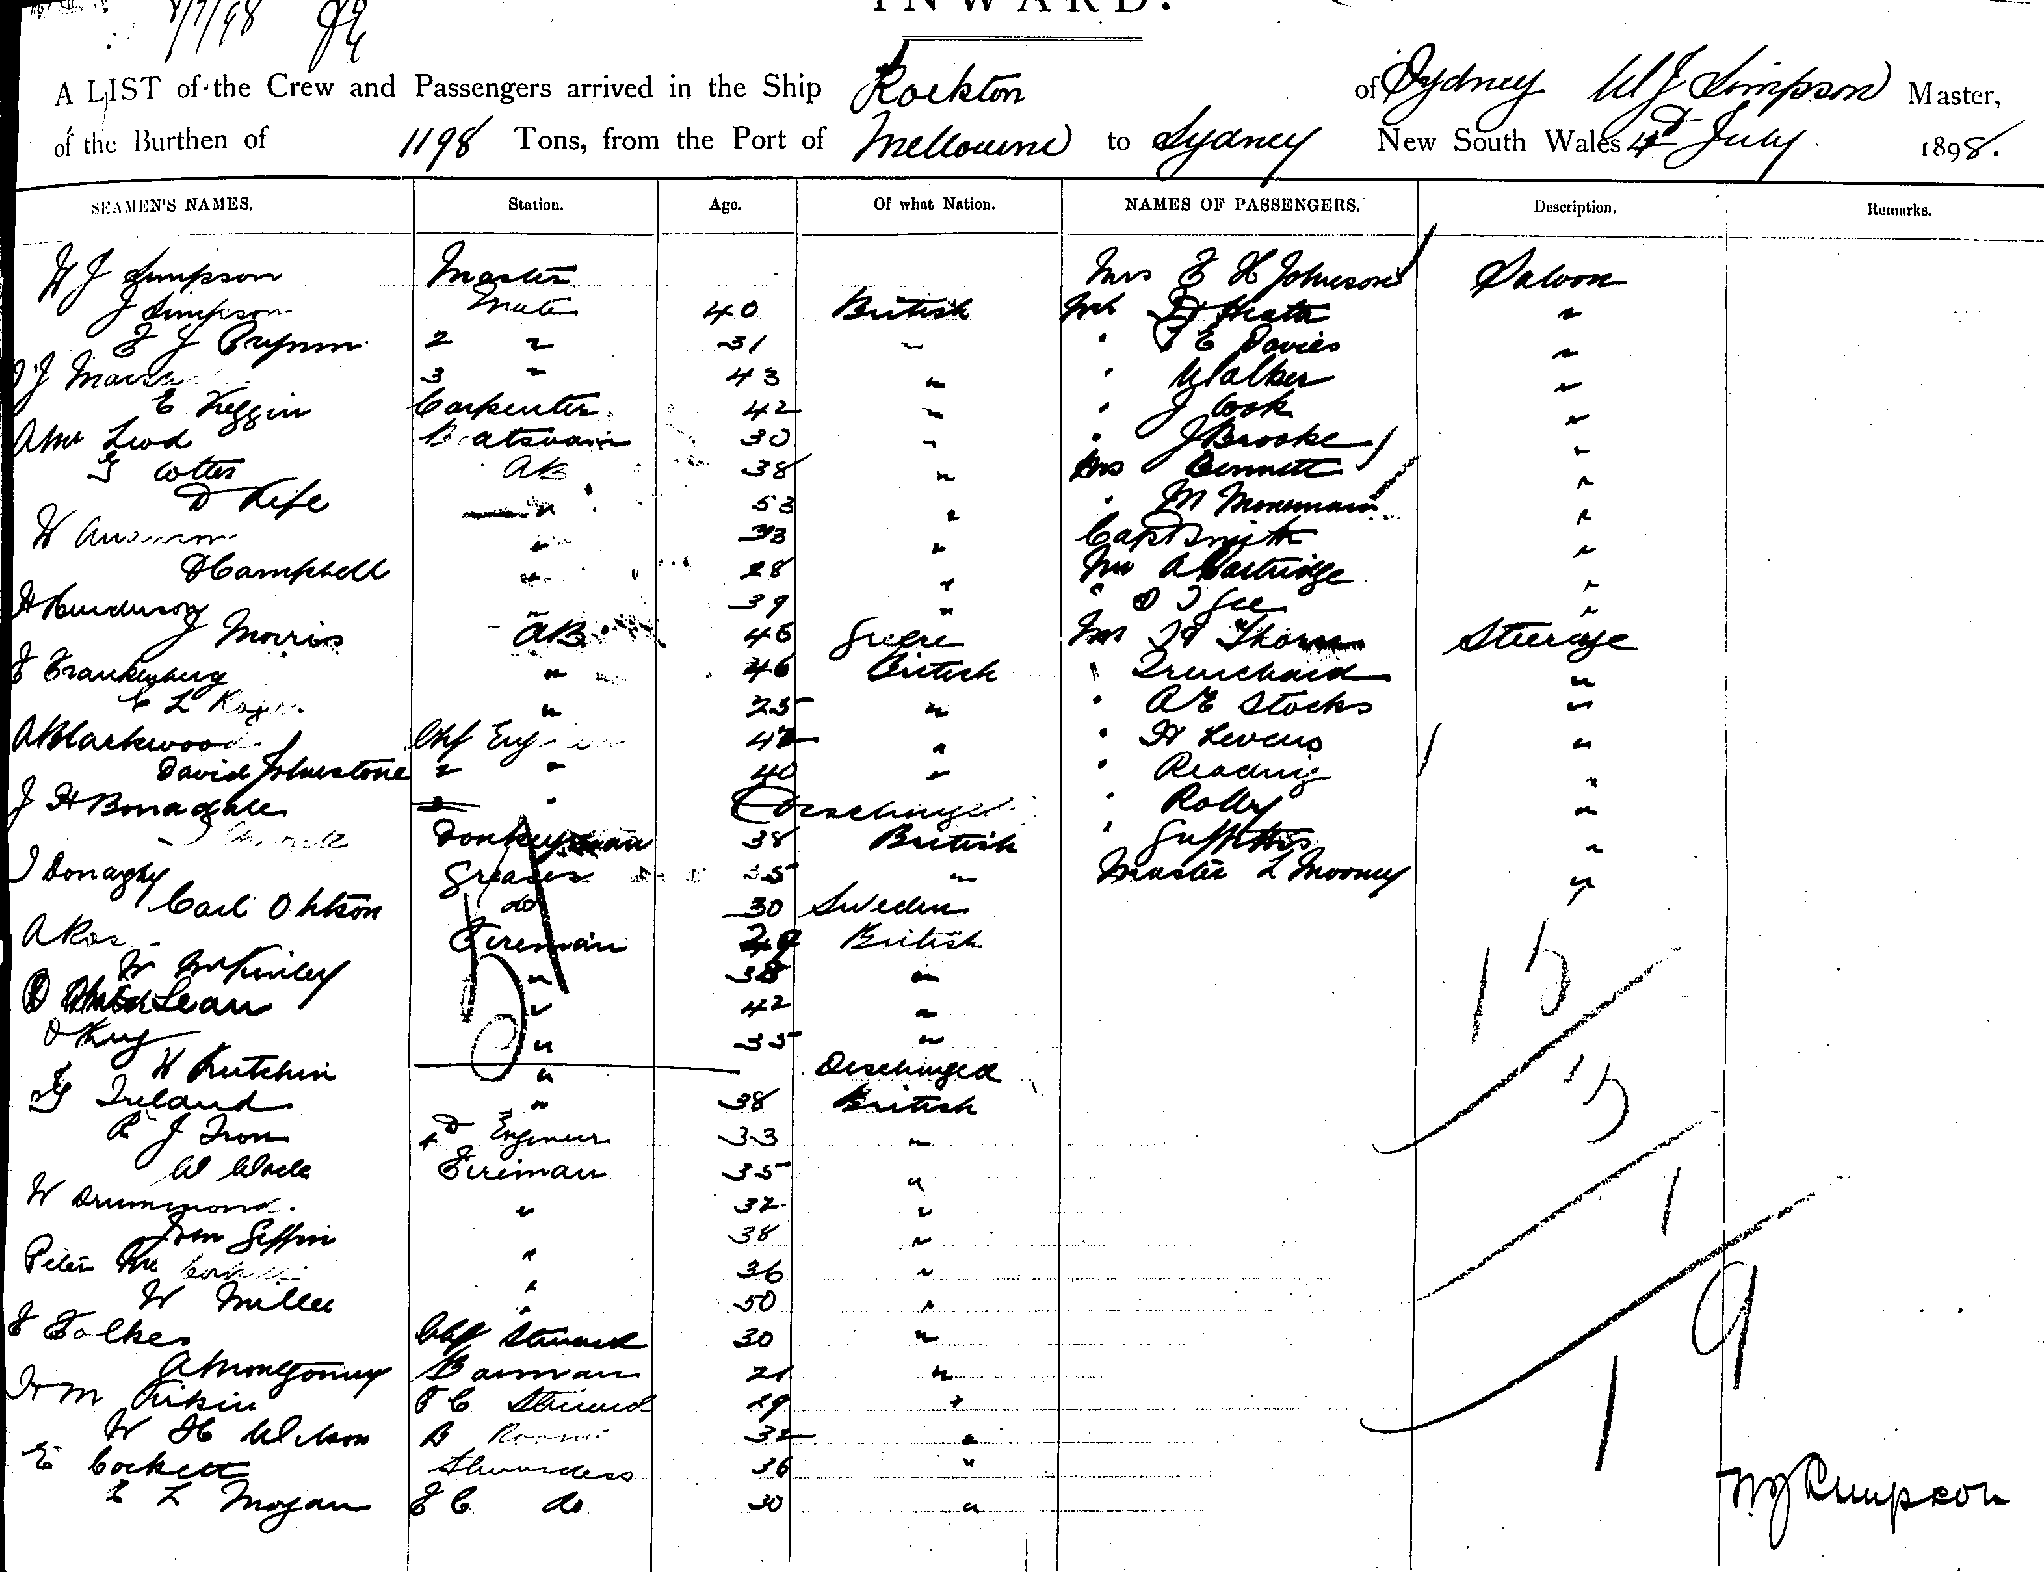 8/7/98
INWARD.
A LIST of the Crew and Passengers arrived in the Ship Rockton of Sydney W J Simpson Master,
of the Burthen of 1198 Tons, from the Port of Melbourne to Sydney New South Wales 4th July 1898.
SEAMEN'S NAMES. Station. Age. Of what Nation. NAMES OF PASSENGERS. Description. Remarks.
W J Simpson Master Mrs E H Johnson Saloon
J Simpson Mate 40 British Mr Heath "
E J Prynn 2 " 31 " " E Davies "
J J 3 " 43 " " Walker "
E Keggin Carpenter 42 " " J Cook "
Boatswain 30 " " J Brooke "
Cotter AB 38 " Mrs Bennett "
D Kefe " 53 " " M "
W " 33 " Capt Smith "
D Campbell " 28 " Mr A Partridge "
H Henderson " 39 " " "
J Morris AB 46 Greece Mr Thorn Steerage
F Frankenberg " 46 British " Trenchard "
E L " 25 " " A E Stocks "
A Blackwood Chf Eng 42 " " H Levens "
David Johnstone 2 " 40 " " Reading "
J H 3 " Discharged " "
Donkeyman 38 British " Griffiths "
J Donaghy Greaser 35 " Master L Mooney "
Carl Ohlson do 30 Sweden
A Fireman 29 British
W McKinley " 38 "
Lean " 42 "
D " 35 " 15
W Hutchin " Discharged
Ireland " 38 British 3
R J Iron 4th Engineer 33 "
W Wade Fireman 35 "
W Drummond " 32 " 1
38 "
Peter " 36 "
W Miller " 50 "
F Folkes Chf Steward 30 " 19
A Montgomery Barman 21 "
Aikin F C Steward 29 "
W H Wilson B 32 "
E Cockett Stewardess 36 "
E L Mogan F C do 30 "
W J Simpson